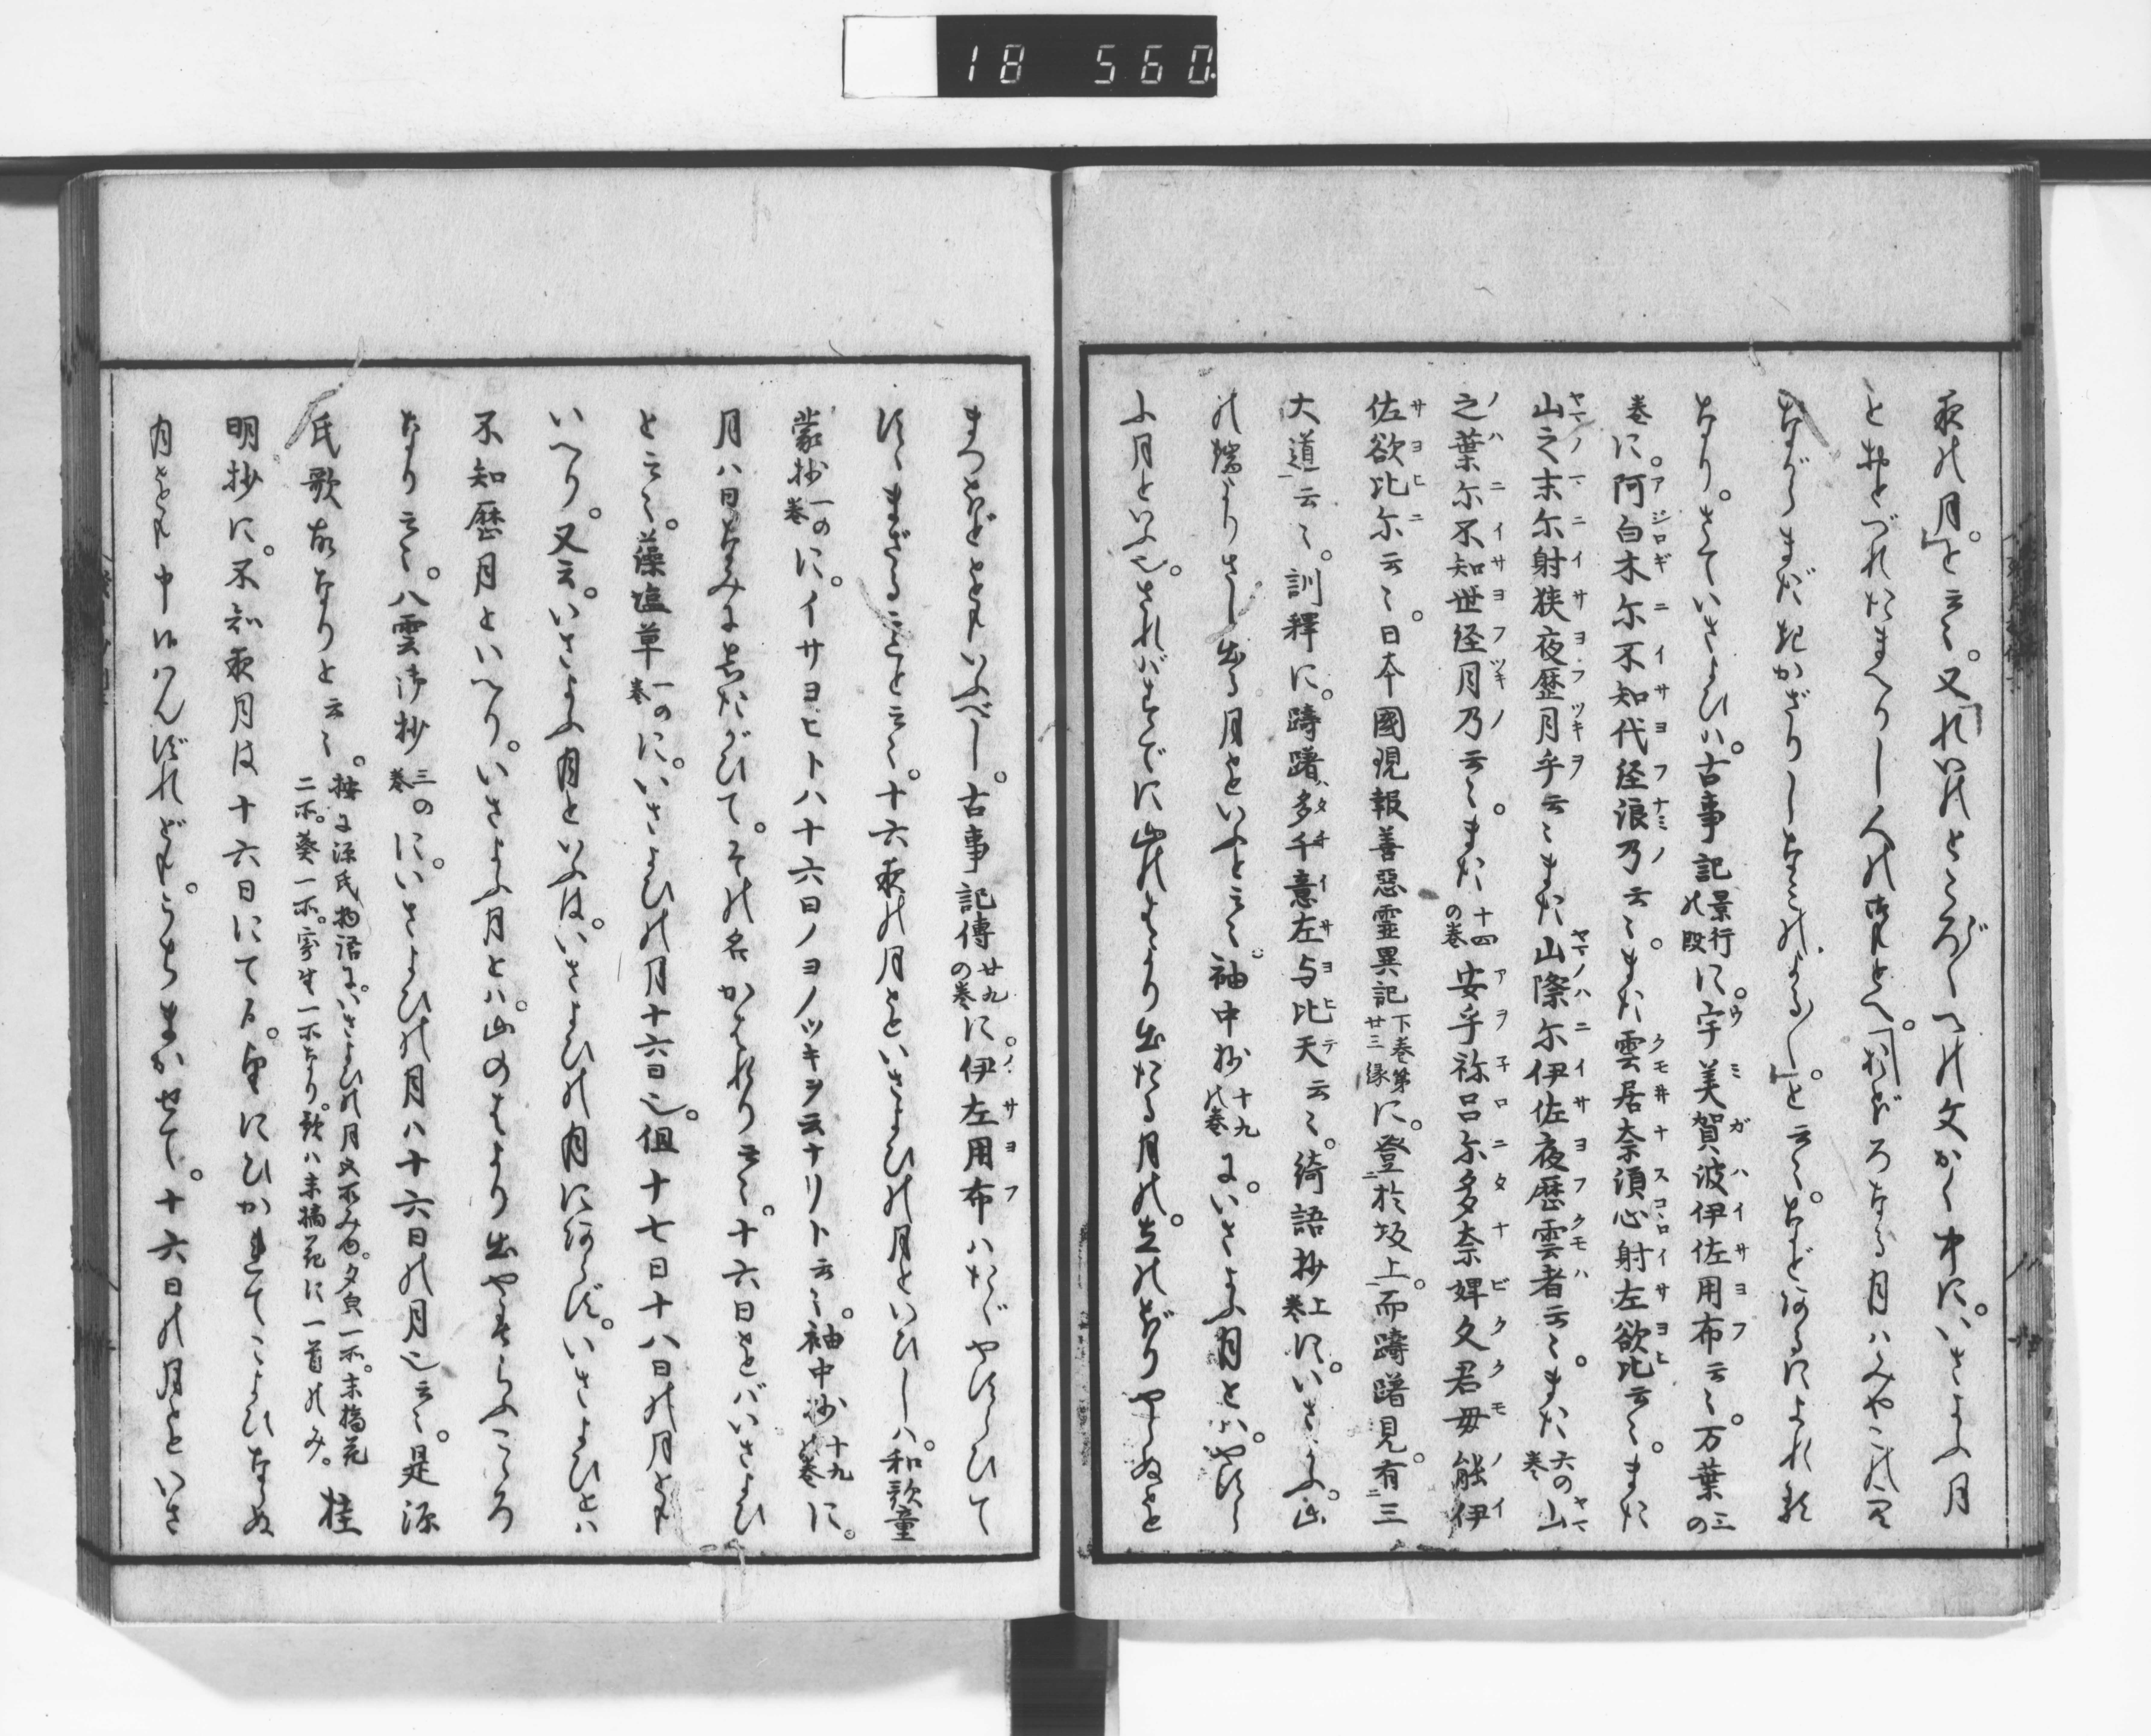 18 560
夜の月と云々。又れいのところ〴〵への文かく中に。いさよふ月
とおとづれたまへりし人の御もとへ。おぼろなる月はみやこの空
ながらまだきかざりしなみのよる〳〵と云々。などあるによれる
なり。さていさよひハ。古事記景行の段に。宇美賀波伊佐用布云々。万葉三の
巻に。阿白木尓不知代経浪乃云々。また雲居奈須心射左欲比云々。また
山之末尓射狭夜歴月乎云々また山際尓伊佐夜歴雲者云々。また六の巻山
之葉尓不知世経月乃云々。また十四の巻安乎祢呂尓多奈婢久君毋能伊
佐欲比尓云々。日本國現報善惡霊異記下巻第廿三縁に。登於坂上。而躊躇見。有三
大道云々。訓釋に。躊躇多千意左与比天云々。綺語抄上巻に。いさよふ。山
の端よりさし出る月をいふと云々。袖中抄十九の巻に。いさよふ月とハ。やすら
ふ月といふ也。されバすでに山のはより出たる月の。立のぼりやらぬを
まつほどをもいふべし。古事記傳廿九の巻に。伊左用布ハたゞやすらひて
すゝまざることと云々。十六夜の月をいさよひの月といひしハ。和歌童
蒙抄一の巻に。イサヨヒトハ十六日ノヨノツキヲ云ナリト云々。袖中抄十九の巻に。
月ハ日なみにしたがひて。その名かはれり云々。十六日をバいさよひ
と云々。藻塩草一の巻に。いさよひの月十六日也。但十七日十八日の月をも
いへり。又云。いさよふ月といふは。いさよひの月にあらず。いさよひとハ
不知歴月といへり。いさよふ月とハ。山のはより出やすらふこゝろ
なり云々。八雲御抄三の巻に。いさよひの月ハ十六日の月也云々。是源
氏歌故なりと云々。按に源氏物語に。いさよひの月四所みゆ。夕㒵一所。末摘花二所。葵一所。寄生一所なり。歌ハ末摘花に一首のみ。桂
明抄に。不知夜月は十六日にてる。望にひかれてこよひならぬ
月をも申侍らんずれども。うちまかせて。十六日の月をいさ